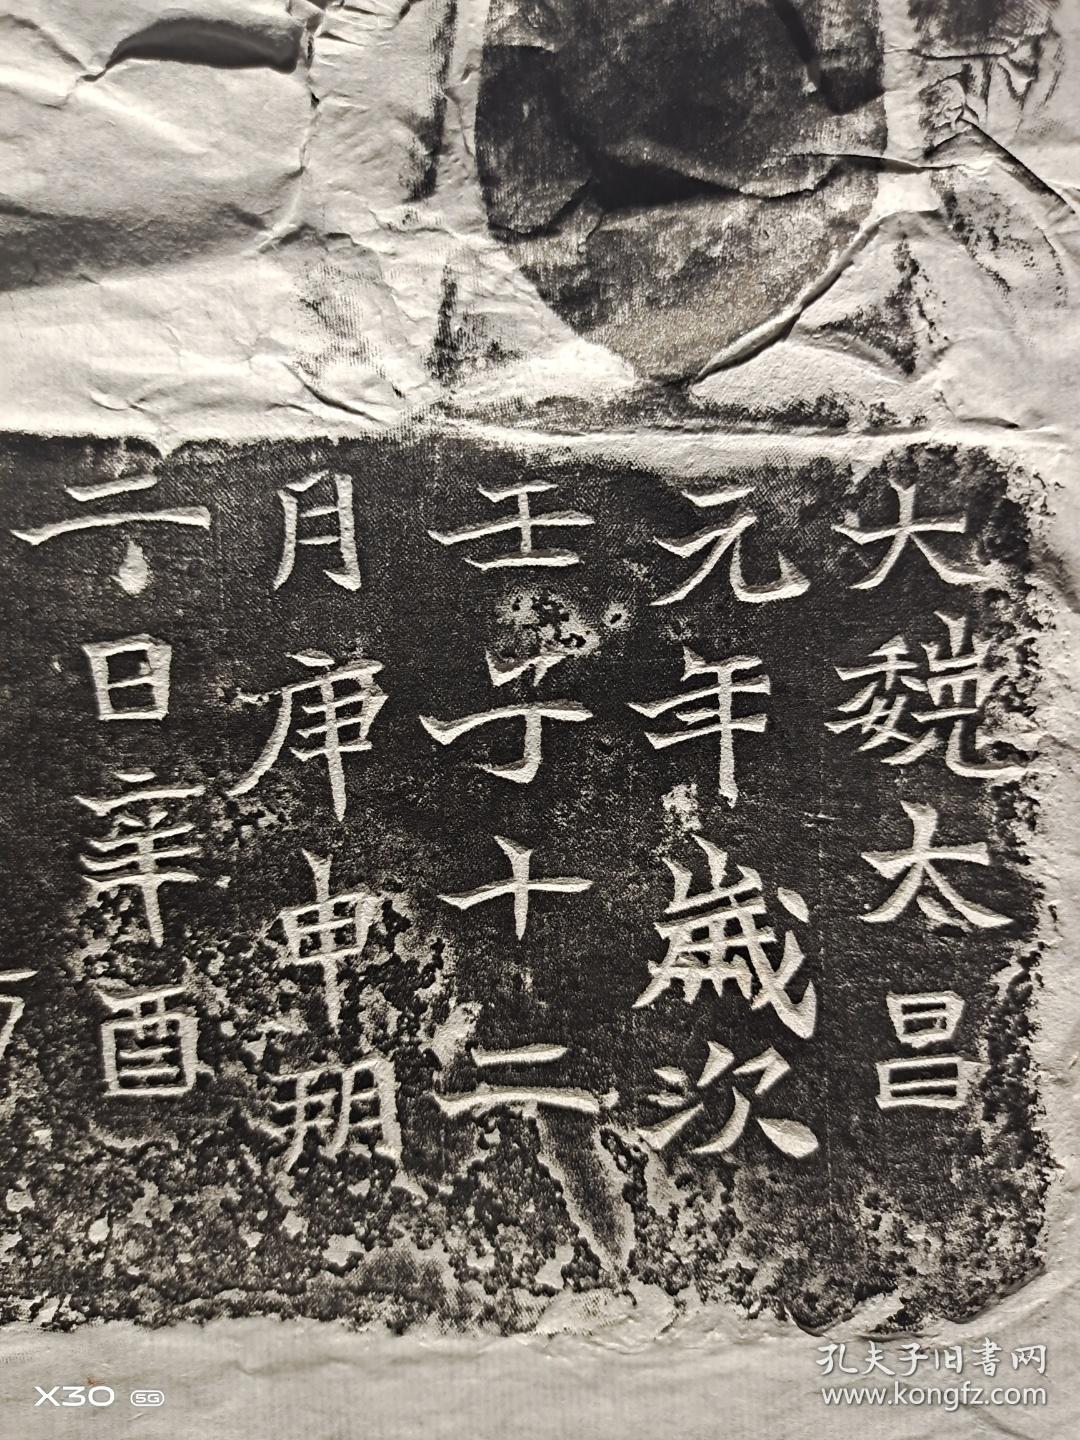 大魏太昌
元年歲次
壬子十二
月庚申朔
二日辛酉
X30 5G
孔夫子旧書网
www.kongfz.com